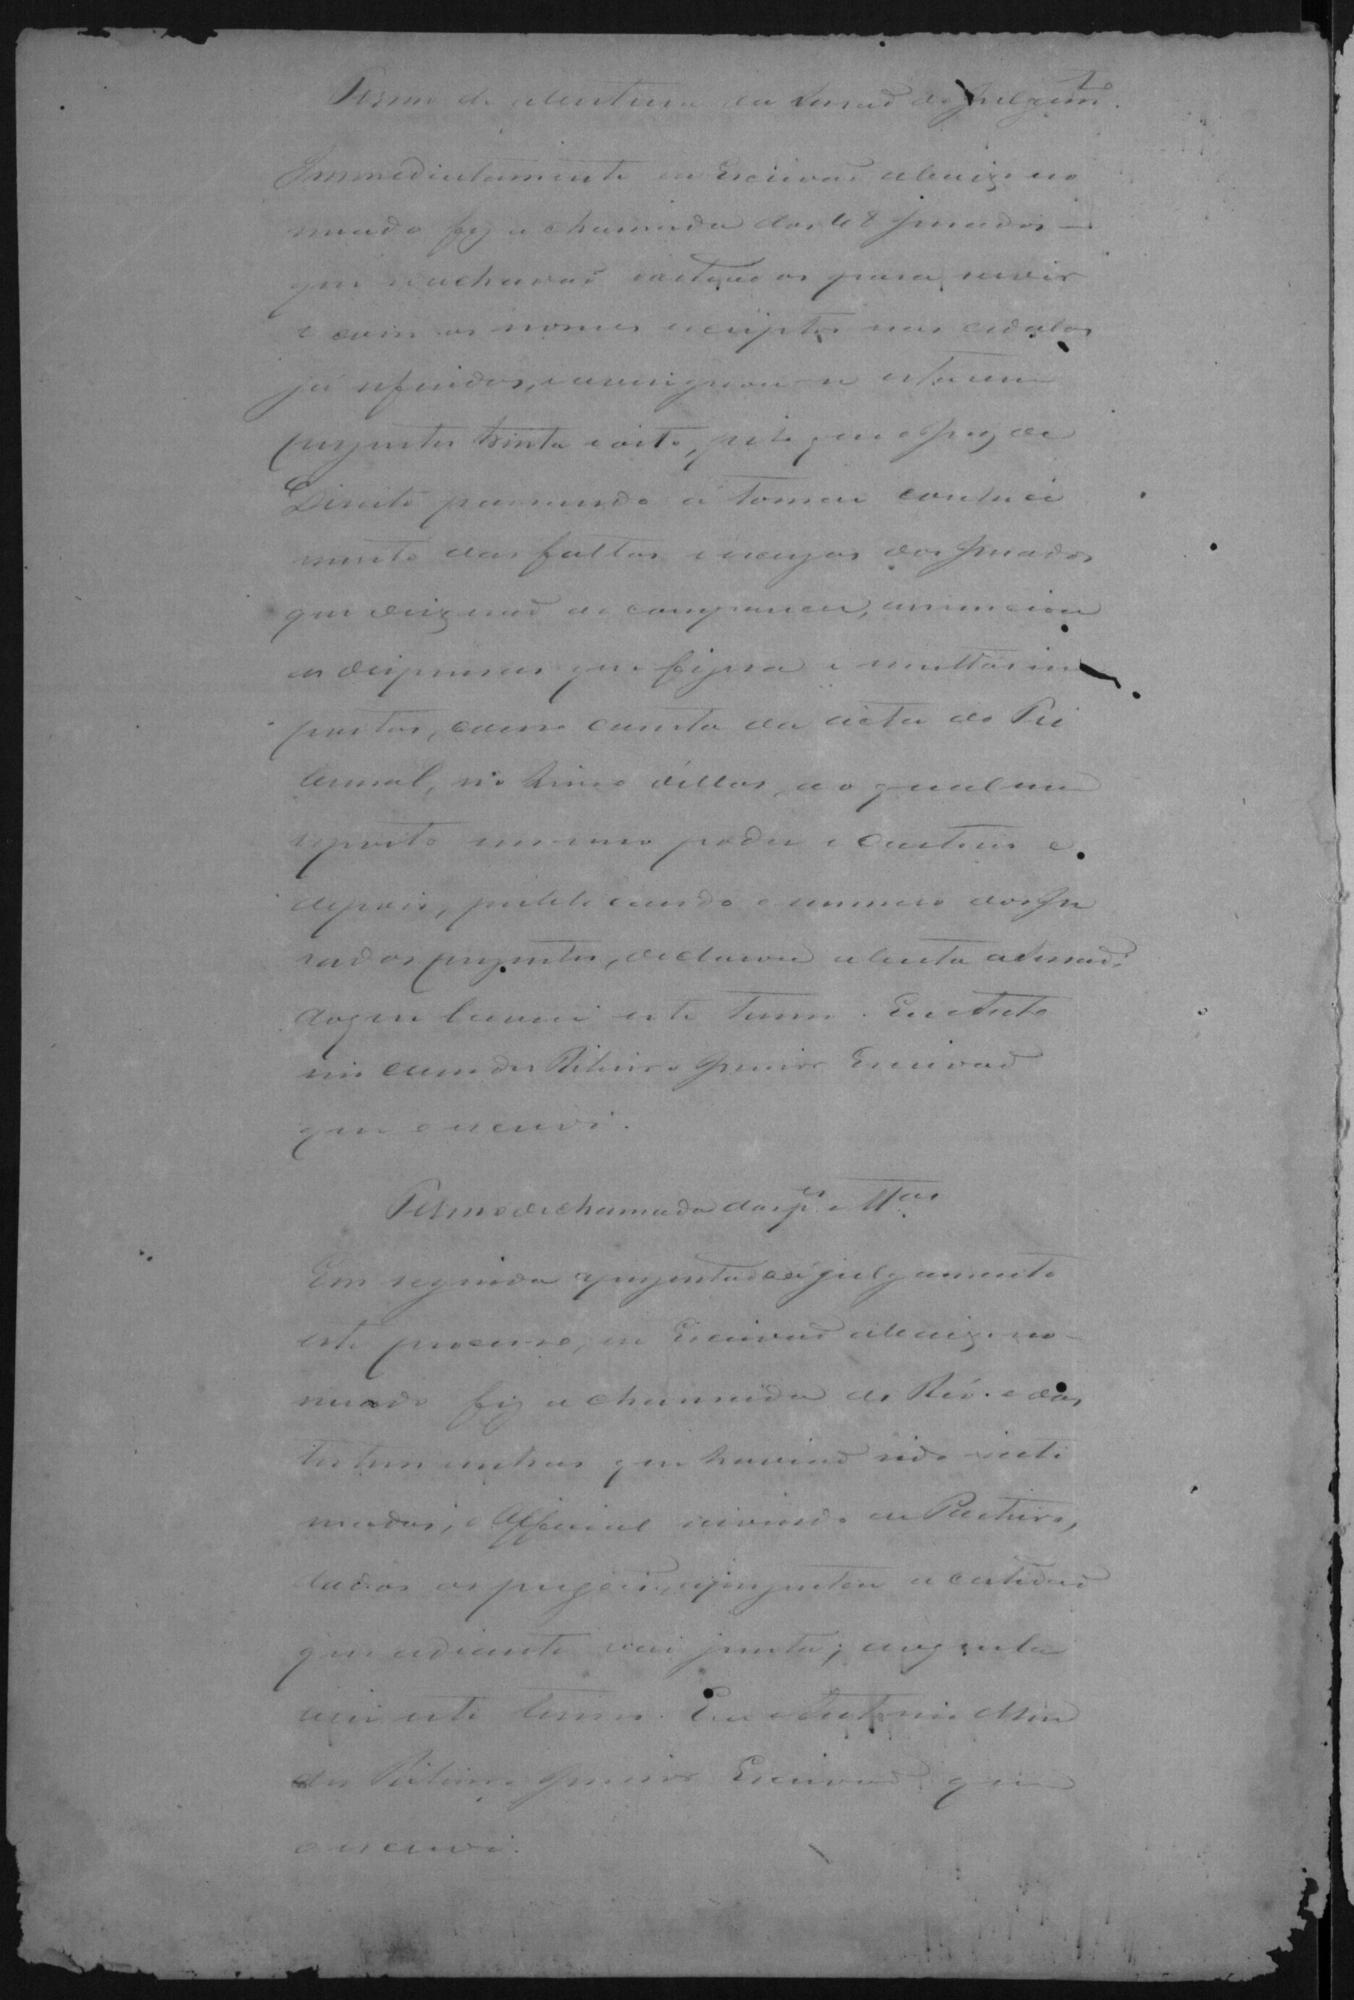 Termo de abertura da Sessaõ do Julgam.to
Immediatamente eu Escrivaõ abaixo no
meado fiz a chamada dos 48 Jurados
que se achavaõ sorteados para servir
e com os nomes escriptos nas cedulas
já referidas, e averiguou-se estarem
presentes trinta e oito, pelo que o Juiz de
Direito passando á tomar conheci
mento das faltas e escuzas dos Jurados
que deixaraõ de comparecer, annunciou
as dispensas que fizera e multas im
postas, como consta da acta do Tri
bunal, no livro dellas, ao qual me
reporto em meu poder e Cartorio e
depois, publicando o numero dos Ju
rados presentes, declarou aberta a Sessaõ:
do que lavrei este termo. Eu Anto
nio Mendes Ribeiro Junior Escrivaõ
que o escrevi.
Termo de chamada das p.es e tt.as
Em seguida apresentado á julgamento
este processo, eu Escrivaõ abaixo no-
meado fiz a chamada do Réo e das
testemunhas que haviaõ sido inti
madas; o Official servindo de Porteiro,
dados os pregões, apresentou a certidaõ
que adiante vai junta; do que la
vrei este termo. Eu Antonio Men
des Ribeiro Junior Escrivaõ que
o escrevi.